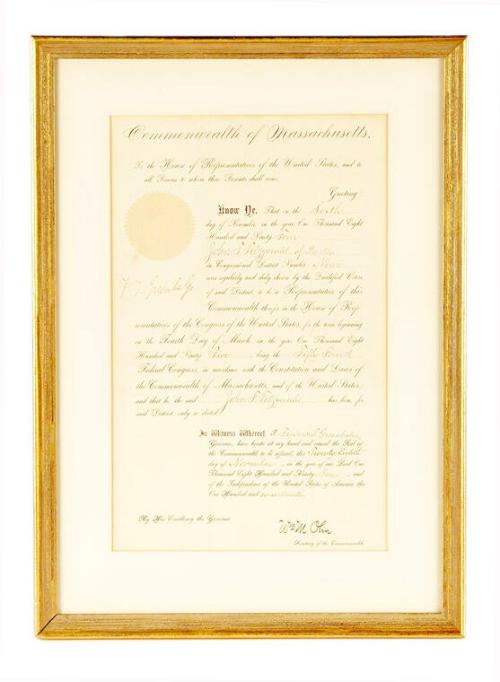 Commonwealth of Massachusetts.
To the House of Representatives of the United States, and to
all Persons to whom these Presents shall come.
Greeting
Know Ye, That on the Sixth
day of November, in the year One Thousand Eight
Hundred and Ninety Four
John F. Fitzgerald of Boston
in Congressional District Number Nine
was regularly and duly chosen by the Qualified Voters
of said District, to be a Representative of this
Commonwealth in the House of Rep-
resentatives of the Congress of the United States, for the term beginning
on the Fourth Day of March, in the year One Thousand Eight
Hundred and Ninety Five being the Fifty Fourth
Federal Congress, in accordance with the Constitution and Laws of
the Commonwealth of Massachusetts, and of the United States,
and that he the said John F. Fitzgerald has been for
said District duly so elected.
In Witness Whereof, I Frederic T. Greenhalge
Governor, have hereto set my hand and caused the Seal of
the Commonwealth to be affixed, this Twenty Eighth
day of November in the year of our Lord One
Thousand Eight Hundred and Ninety Four and
of the Independence of the United States of America the
One Hundred and nineteenth
By His Excellency the Governor
Wm M. Olin
Secretary of the Commonwealth.